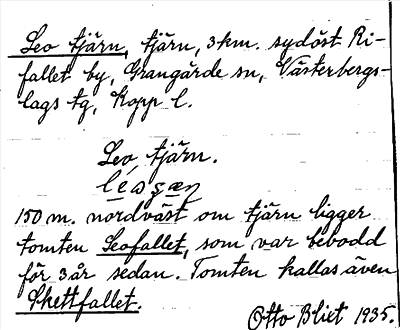 Leo tjärn, tjärn, 3 km. sydöst Ri-
fallet by, Grangärde sn, Västerbergs-
lags tg, Kopp l.
Leo tjärn.
150 m. nordväst om tjärn ligger
tomten Leofallet, som var bebodd
för 3 år sedan. Tomten kallas även
Skettfallet.
Otto Blixt 1935.